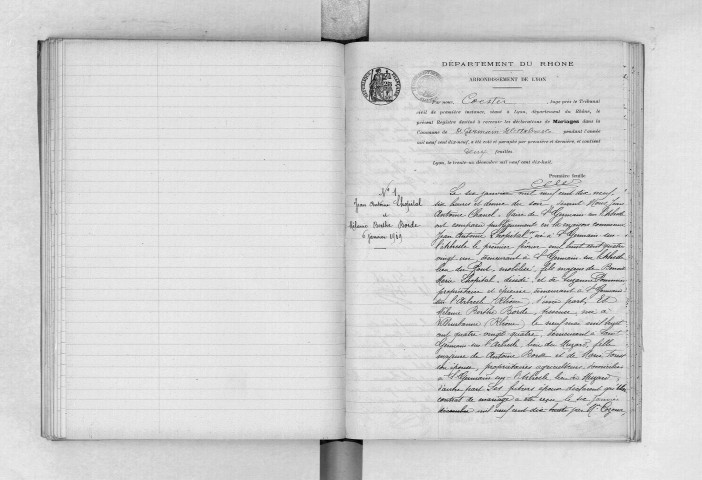 DÉPARTEMENT DU RHONE
ARRONDISSEMENT DE LYON
Par nous Coester, Juge près le Tribunal
civil de première instance, séant à Lyon, département du Rhône, le
présent Registre destiné à recevoir les déclarations de Mariages dans la
Commune de St Germain pendant l'année
mil neuf cent dix-neuf, a été coté et paraphé par première et dernière, et contient
feuilles.
Lyon, le trente un décembre mil neuf cent dix-huit.
Première feuille
N° 1
Jean Antoine Lhopital
et
Mélanie Berthe Borde
6 janvier 1919
Le six janvier mil neuf cent dix neuf,
six heures et demie du soir, devant Nous Jean
Antoine Chanel, Maire de St Germain sur l'Arbresle
ont comparu publiquement en la maison commune
Jean Antoine Lhopital, né à St Germain sur
l'Arbresle le premier février mil huit cent quatre
vingt un demeurant à St Germain sur l'Arbresle
lieu du Pont, fils majeur de
Marie Lhopital, décédé, et de
propriétaire et demeurant à St Germain
sur l'Arbresle (Rhône), d'une part, Et
Mélanie Berthe Borde, née à
Villeurbanne (Rhône), le neuf mai mil huit
cent quatre vingt quatre, demeurant à Saint
Germain sur l'Arbresle, lieu du fille
majeure de Antoine Borde et de Marie
son épouse, propriétaires agriculteurs domiciliés
à St Germain sur l'Arbresle lieu du
d'autre part. Les futurs époux déclarent qu'un
contrat de mariage a été reçu le
décembre mil neuf cent dix huit par Me